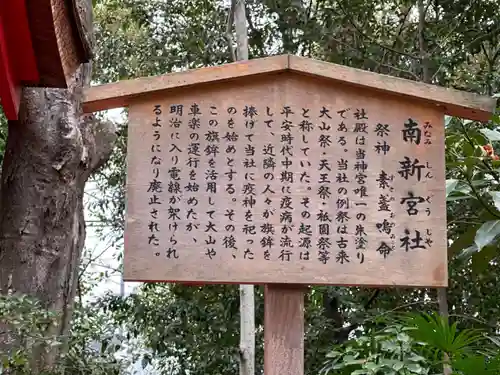 南新宮社
みなみ しん ぐう じや
祭神 素盞嗚命
すさのおのみこと
社殿は当神宮唯一の朱塗り
である。当社の例祭は古来
大山祭・天王祭・祇園祭等
と称していた。その起源は
平安時代中期に疫病が流行
して、近隣の人々が旗鉾を
捧げて当社に疫神を祀った
のを始めとする。その後、
この旗鉾を活用して大山や
車楽の運行を始めたが、
明治に入り電線が架けられ
るようになり廃止された。